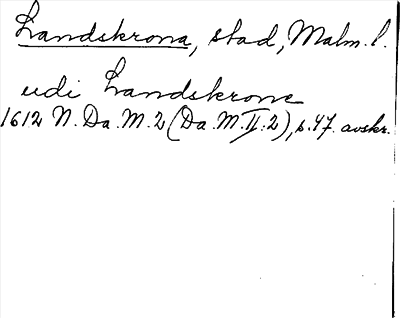 Landskrona, stad, Malm. l.
udi Landskrone
1612 N. Da. M. 2 (Da. M. II: 2), s. 47. avskr.